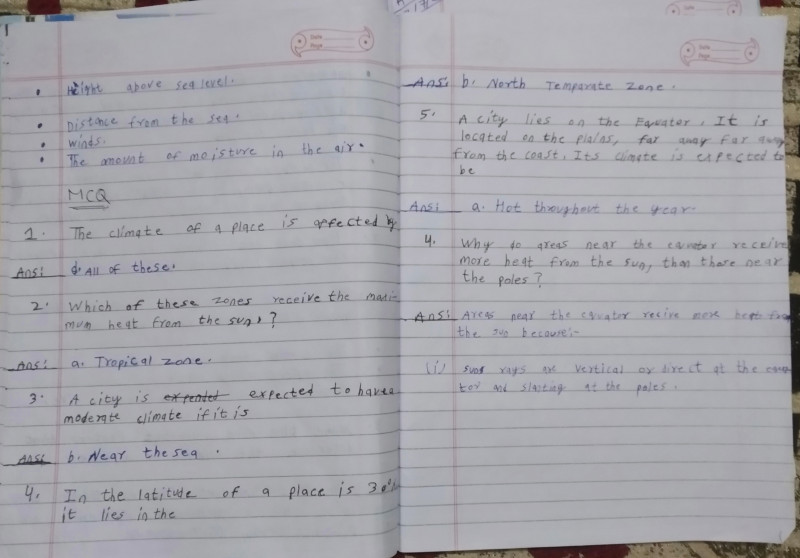 • Height above sea level.
• Distance from the sea.
• Winds.
• The amount of moisture in the air.
MCQ
1. The climate of a place is affected by
Ans: d. All of these.
2. Which of these zones receive the maxi-
mum heat from the sun?
Ans: a. Tropical zone.
3. A city is expended expected to have a
moderate climate if it is
Ans: b. Near the sea.
4. In the latitude of a place is 30°
it lies in the
Date
Page
Ans: b. North Temparate Zone.
5. A city lies on the Equator. It is
located on the plains, far away far away
from the coast. Its climate is expected to
be
Ans: a. Hot throughout the year.
4. Why do areas near the equator receive
more heat from the sun, than those near
the poles?
Ans: Areas near the equator recive more heat from
the sun because:-
(i) suns rays are vertical or direct at the equa
tor and slanting at the poles.